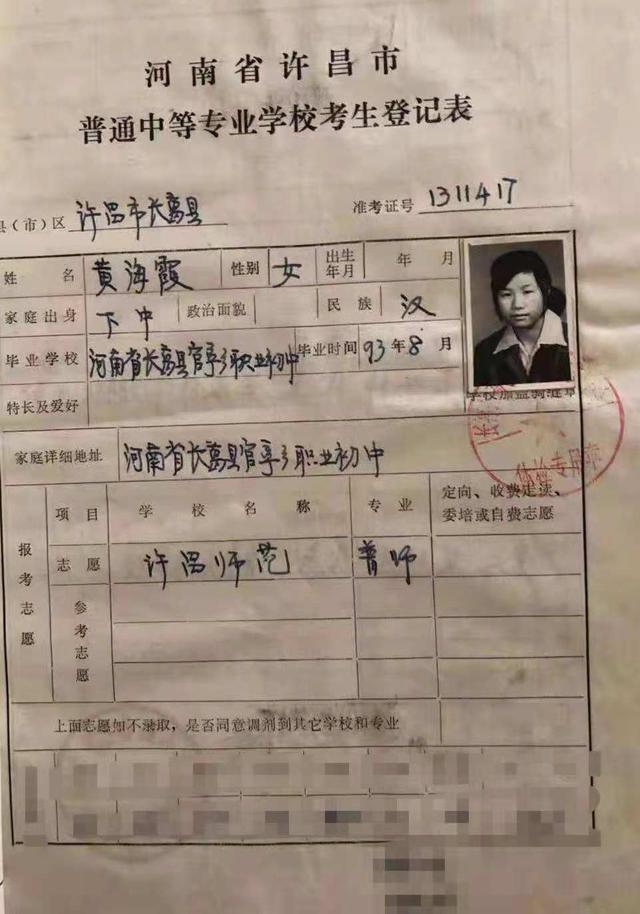 河南省许昌市
普通中等专业学校考生登记表
县（市）区 许昌市长葛县 准考证号 1311417
姓名 黄海霞 性别 女 出生年月 年 月
家庭出身 下中 政治面貌 民族 汉
毕业学校 河南省长葛县官亭乡职业初中 毕业时间 93年8月
特长及爱好 学校加盖骑缝章
家庭详细地址 河南省长葛县官亭乡职业初中
报考志愿 项目 学校名称 专业 定向、收费走读、
委培或自费志愿
志愿 许昌师范 普师
参考志愿
上面志愿如不录取，是否同意调剂到其它学校和专业